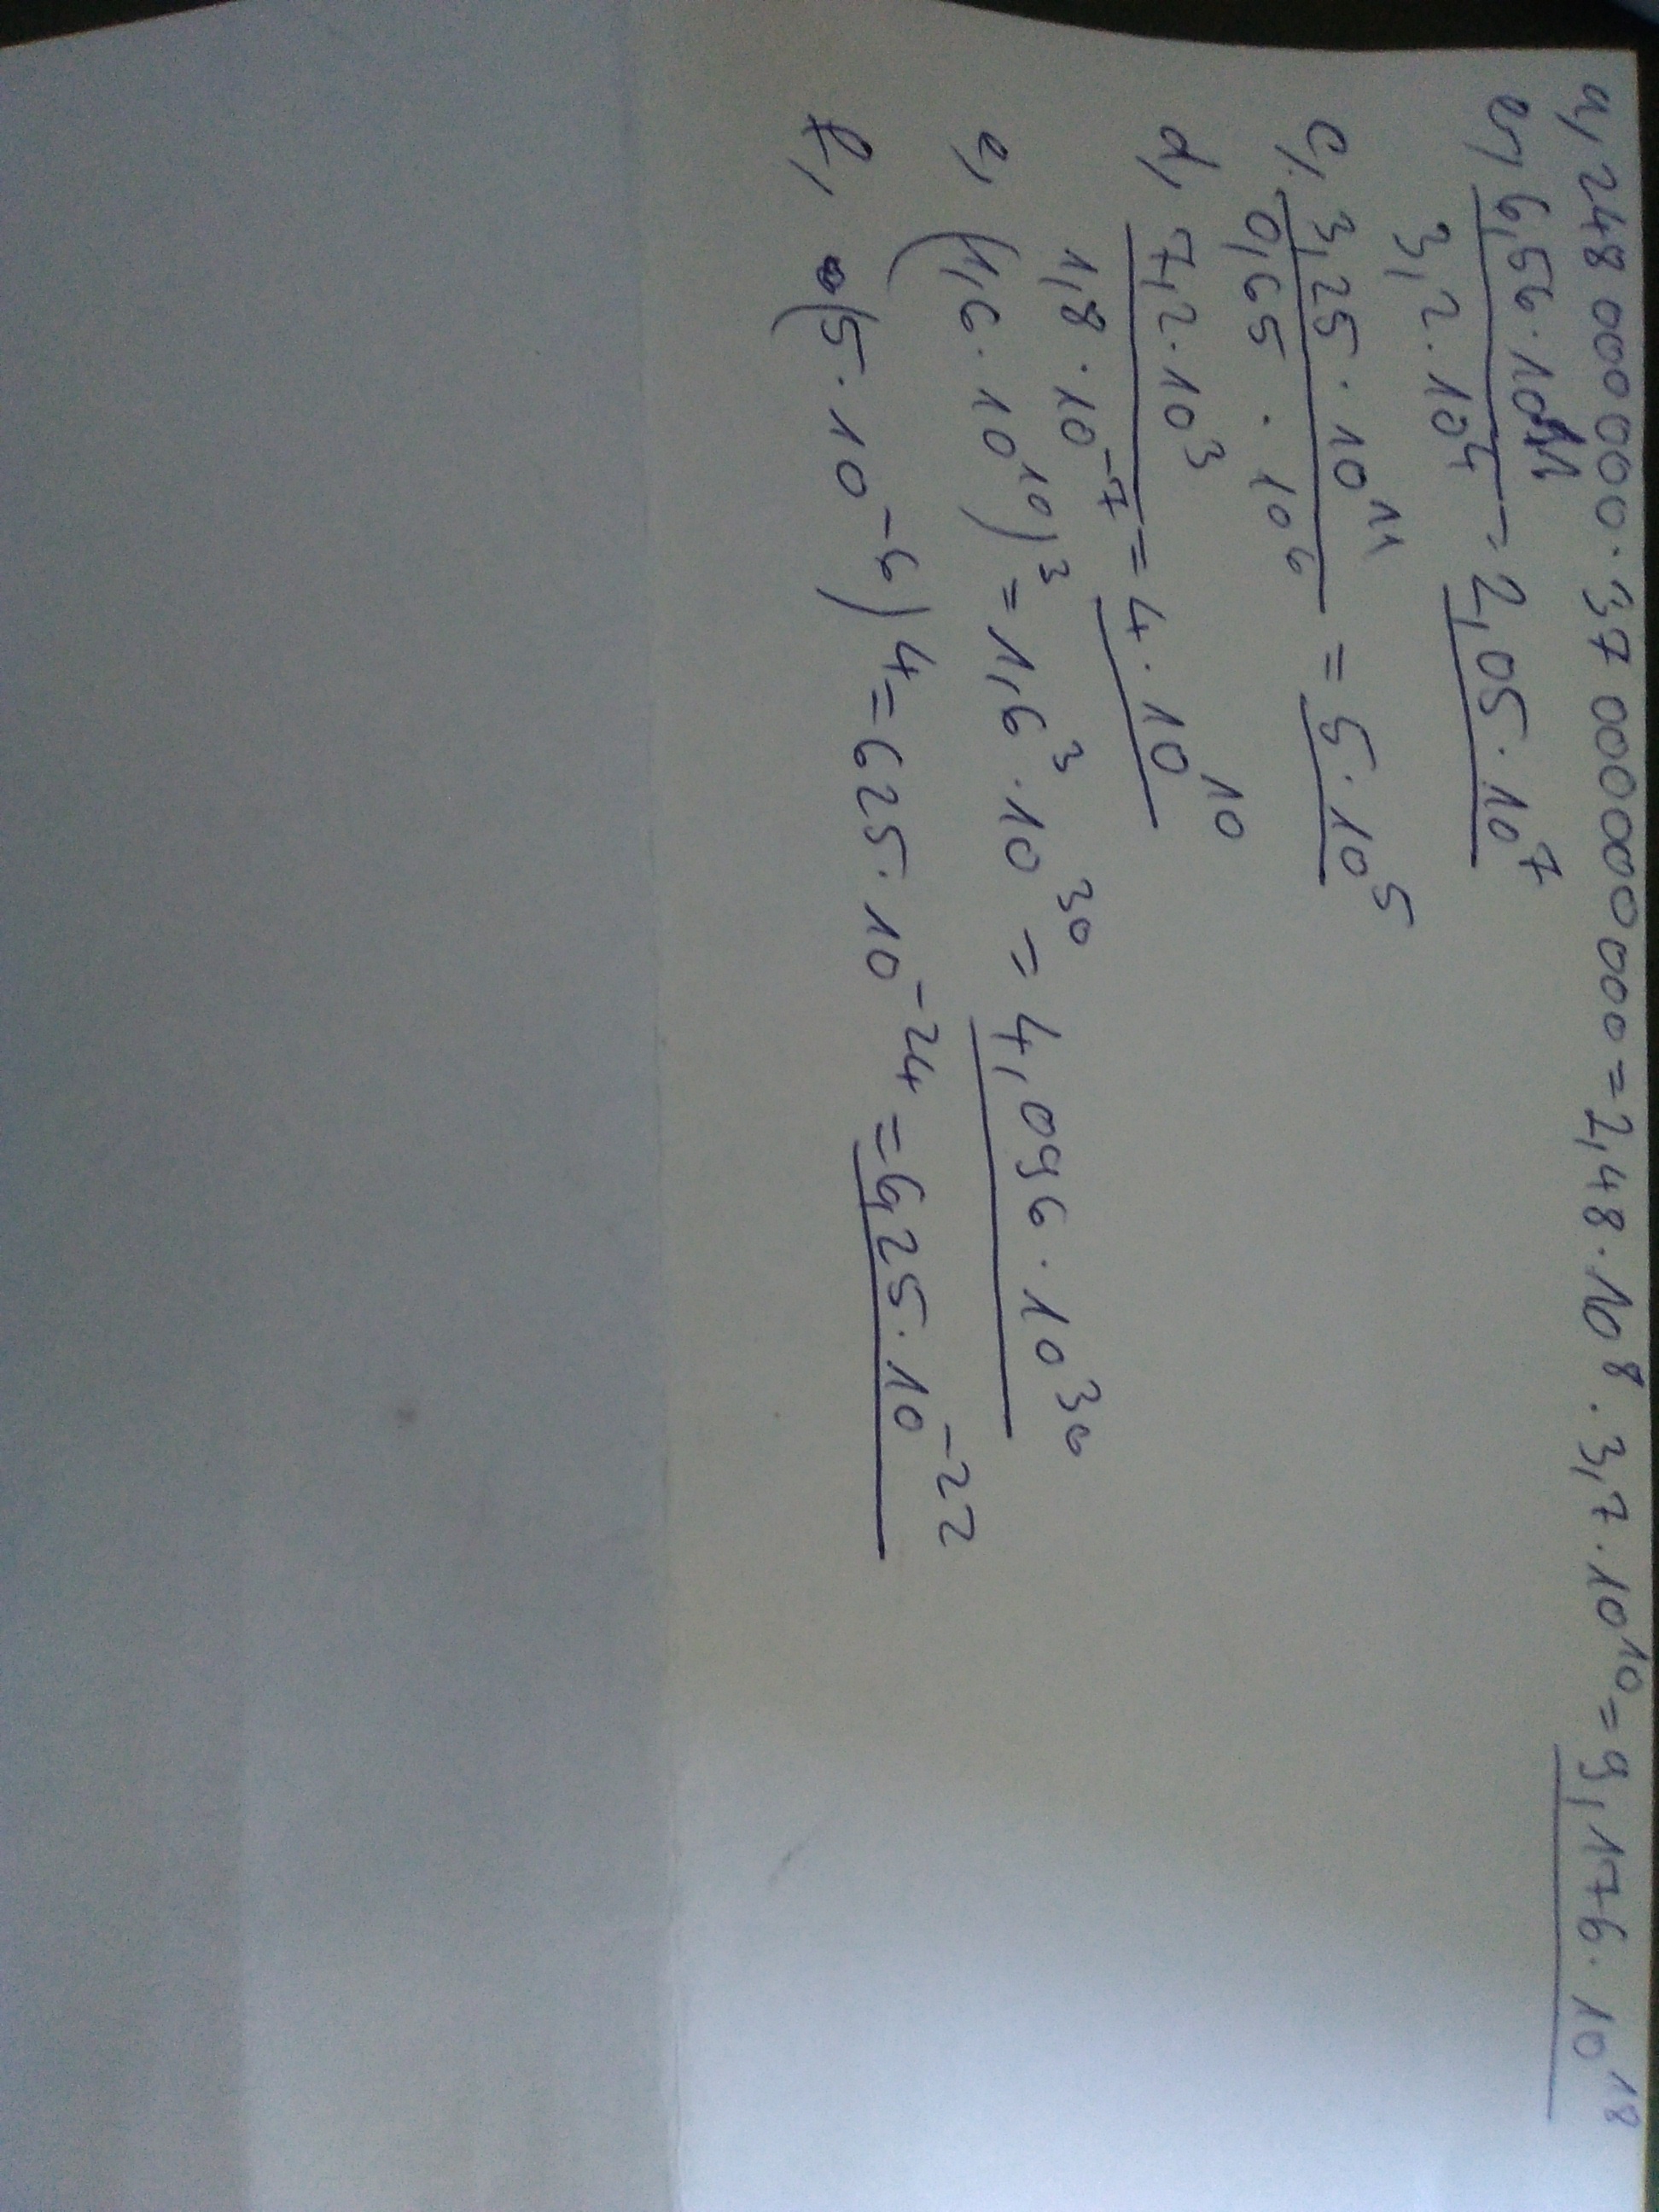 a, 248 000 000 · 37 000 000 000 = 2,48 · 10⁸ · 3,7 · 10¹⁰ = 9,176 · 10¹⁸
b, 6,56 · 10¹¹ = 2,05 · 10⁷
3,2 · 10⁴
c, 3,25 · 10¹¹ = 5 · 10⁵
0,65 · 10⁶
d, 7,2 · 10³ = 4 · 10¹⁰
1,8 · 10⁻⁷
e, (1,6 · 10¹⁰)³ = 1,6³ · 10³⁰ = 4,096 · 10³⁰
f, (5 · 10⁻⁶)⁴ = 625 · 10⁻²⁴ = 6,25 · 10⁻²²